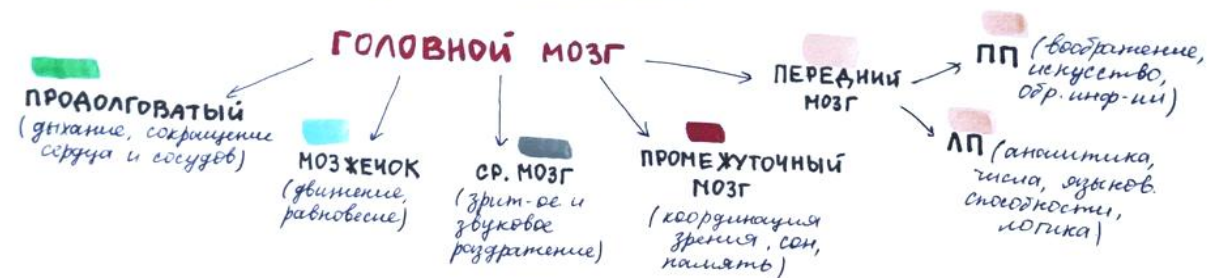 ГОЛОВНОЙ МОЗГ
ПРОДОЛГОВАТЫЙ
(дыхание, сокращение
сердца и сосудов)
МОЗЖЕЧОК
(движение,
равновесие)
СР. МОЗГ
(зрит-ое и
звуковое
раздражение)
ПРОМЕЖУТОЧНЫЙ
МОЗГ
(координация
зрения, сон,
память)
ПЕРЕДНИЙ
МОЗГ
ПП (воображение,
искусство,
обр. инф-ии)
ЛП (аналитика,
числа, языков.
способности,
логика)